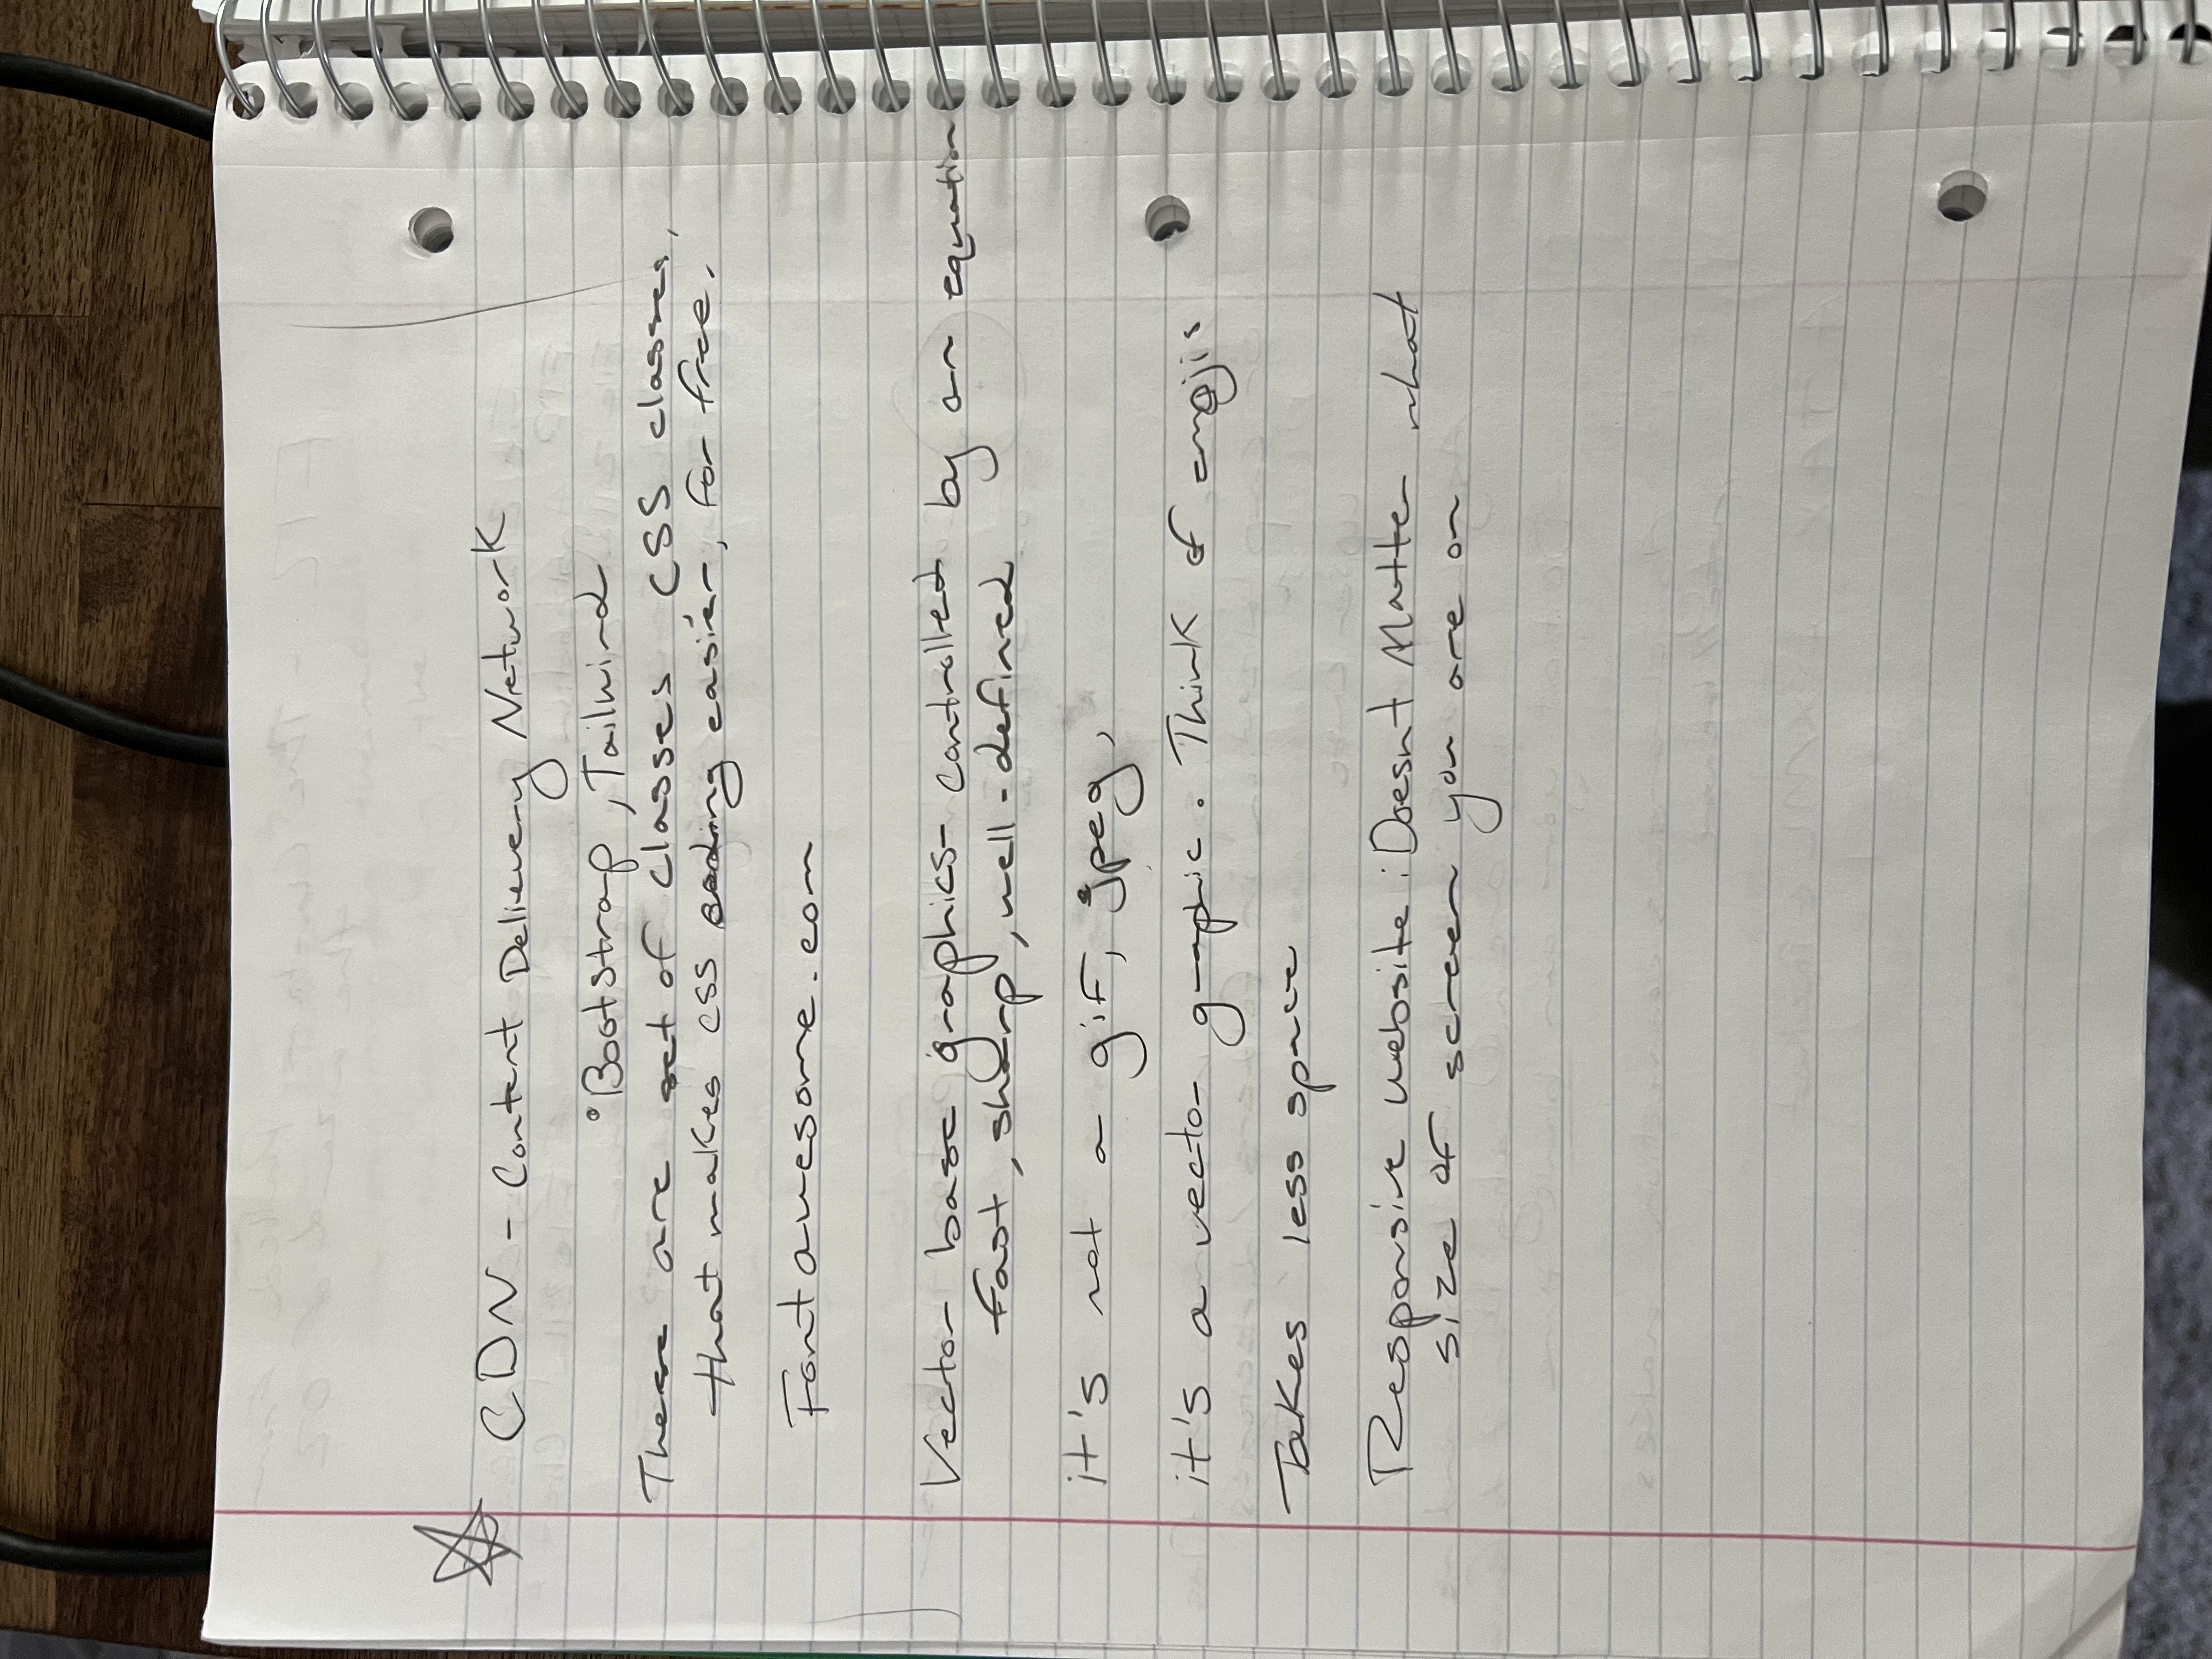 CDN - Content Delivery Network
°Bootstrap, Tailwind
These are set of classes CSS classes,
that makes css coding easier, for free.
Fontawesome.com
Vector base graphics - controlled by an equation
fast, sharp, well-defined
it's not a gif, jpeg,
it's a vector graphic. Think of emojis
Takes less space
Responsive website: Doesnt Matter what
size of screen you are on